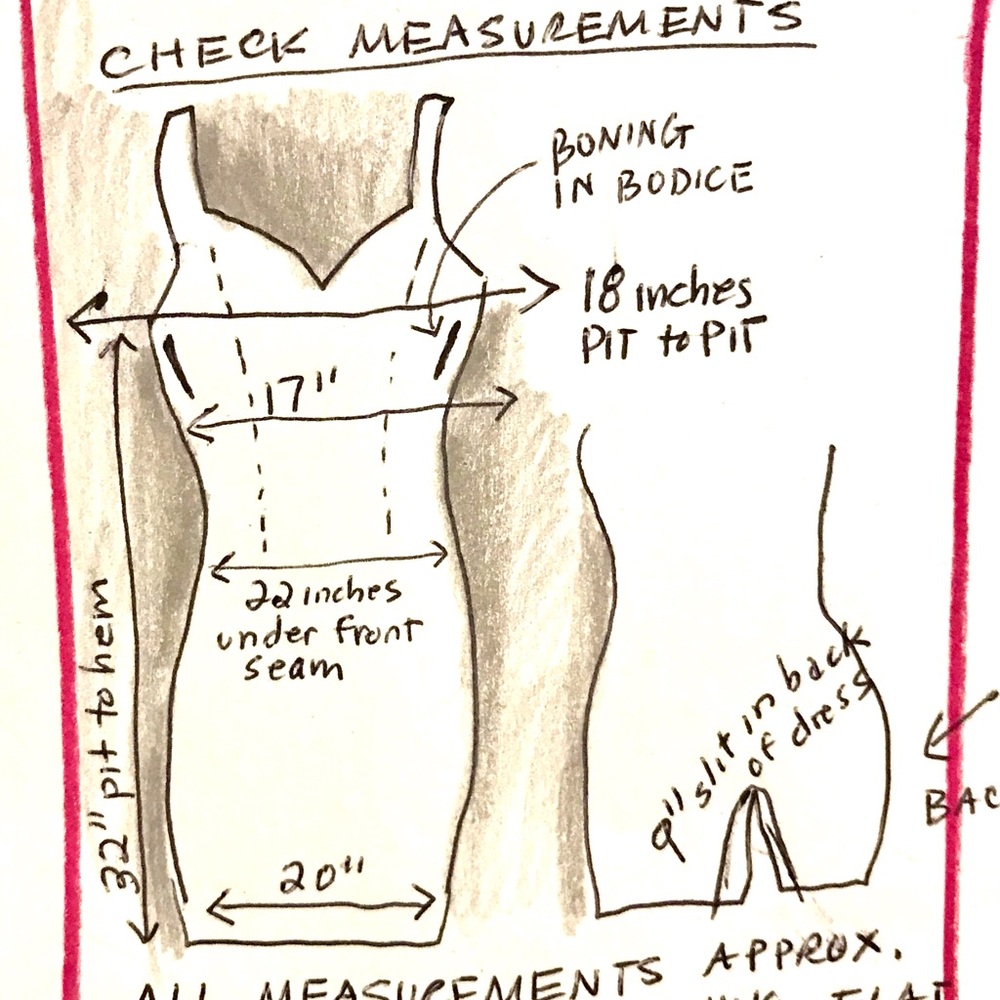 CHECK MEASUREMENTS
BONING
IN BODICE
18 inches
PIT to PIT
17"
22 inches
under front
seam
32" pit to hem
20"
9" slit in back
of dress
BAC
ALL MEASUREMENTS APPROX.
FLAT